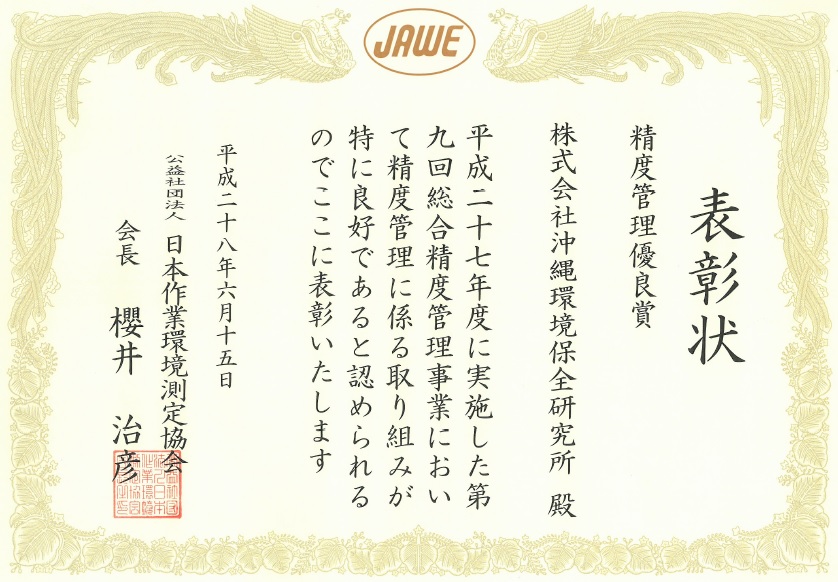 JAWE
表彰状
精度管理優良賞
株式会社沖縄環境保全研究所 殿
平成二十七年度に実施した第
九回総合精度管理事業におい
て精度管理に係る取り組みが
特に良好であると認められる
のでここに表彰いたします
平成二十八年六月十五日
公益社団法人 日本作業環境測定協会
会長 櫻井 治彦